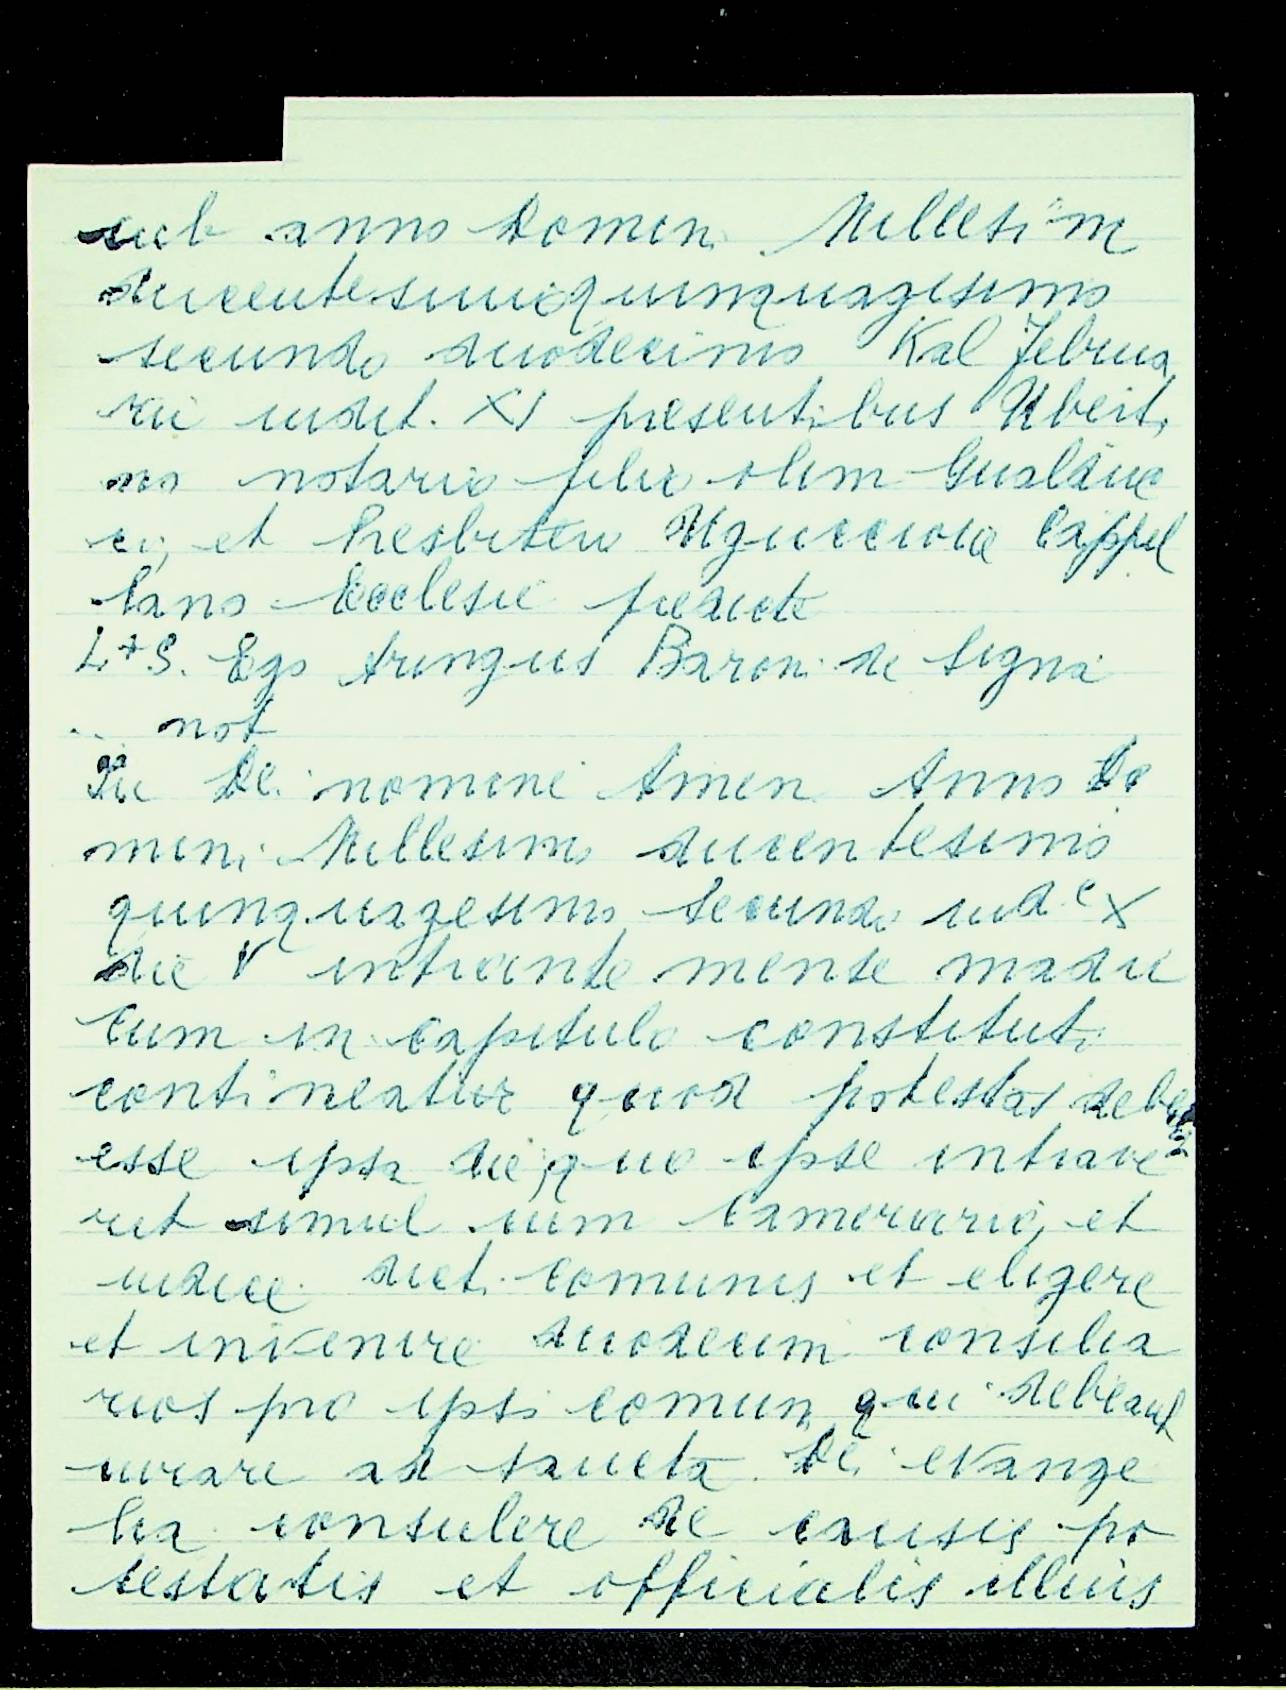 sub anno Domini Millesim
ducentesimo quinquagesimo
secundo duodecimo Kal Februa
rii indit. XI presentibus Uberti
no notario filio olim Gualduc
ci, et Presbitero Uguccione Cappel
lano Ecclesie predicte
L+S. Ego Aringus Baroni de Signa
... not
In Dei nomine Amen Anno Do
mini Millesimo ducentesimo
quinquagesimo secundo ind.e X
die V intrante mense madii
Cum in capitulo constituti
contineatur quod potestas debe
esse ipsa die, quo ipse intrave
rit simul cum Camerario, et
iudice dicti comunis et eligere
et invenire duodecim consilia
rios pro ipsi comuni qui debeant
iurare ad sancta Dei evange
lia consulere de causis po
testatis et officialis illius